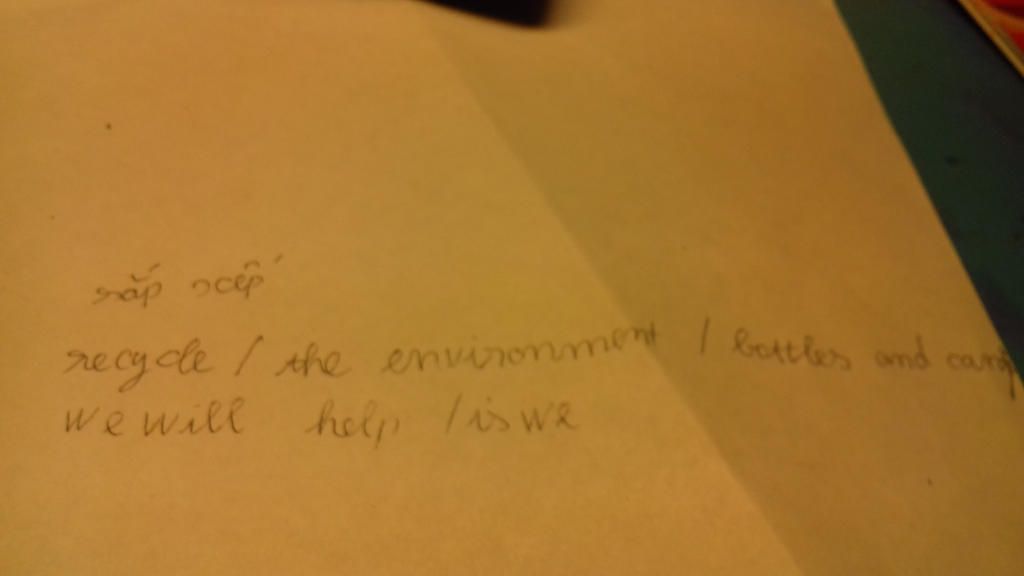 sắp xếp
recycle / the environment / bottles and cans/
we will help / is we